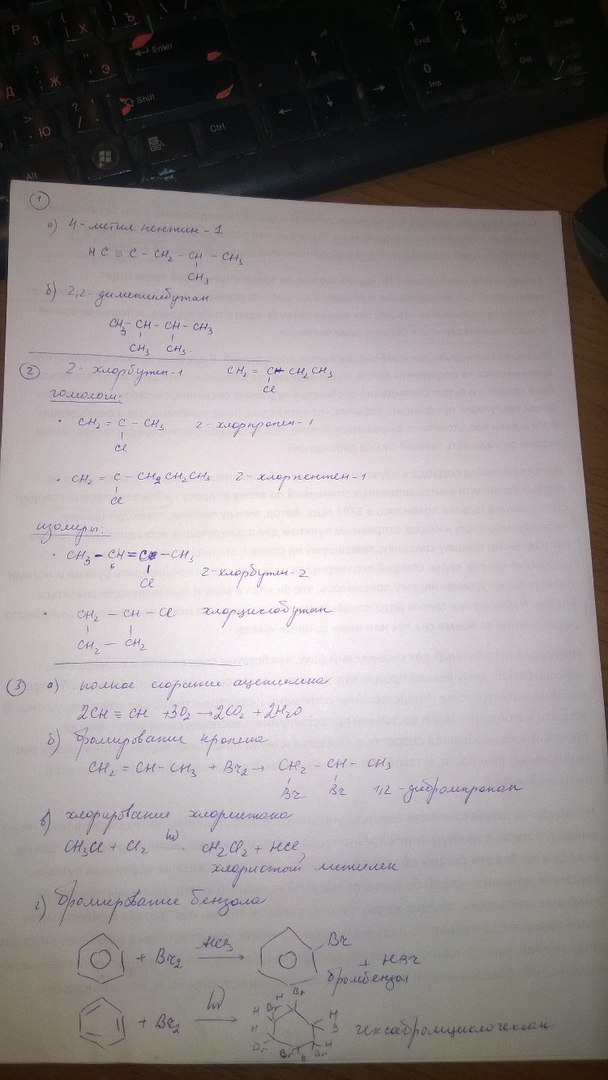 Enter
Shift
Ctrl
Alt
1
End
2
3
Pg Dn
0
Ins
Del
Enter
1
а) 4-метил пентин-1
HC ≡ C - CH2 - CH - CH3
CH3
б) 2,2-диметилбутан
CH3 - CH - CH - CH3
CH3 CH3
2 2-хлорбутен-1 CH2 = C - CH2CH3
Cl
гомологи:
· CH2 = C - CH3 2-хлорпропен-1
Cl
· CH2 = C - CH2CH2CH3 2-хлорпентен-1
Cl
изомеры:
· CH3 - CH = C - CH3
Cl 2-хлорбутен-2
· CH2 - CH - Cl хлорциклобутан
CH2 - CH2
3 а) полное сгорание ацетилена
2CH ≡ CH + 3O2 → 2CO2 + 2H2O
б) бромирование пропена
CH2 = CH - CH3 + Br2 → CH2 - CH - CH3
Br Br 1,2-дибромпропан
в) хлорирование хлорметана
CH3Cl + Cl2 hν → CH2Cl2 + HCl
хлористый метилен
г) бромирование бензола
+ Br2 → Br + HBr
бромбензол
+ Br2 hν → гексабромциклогексан